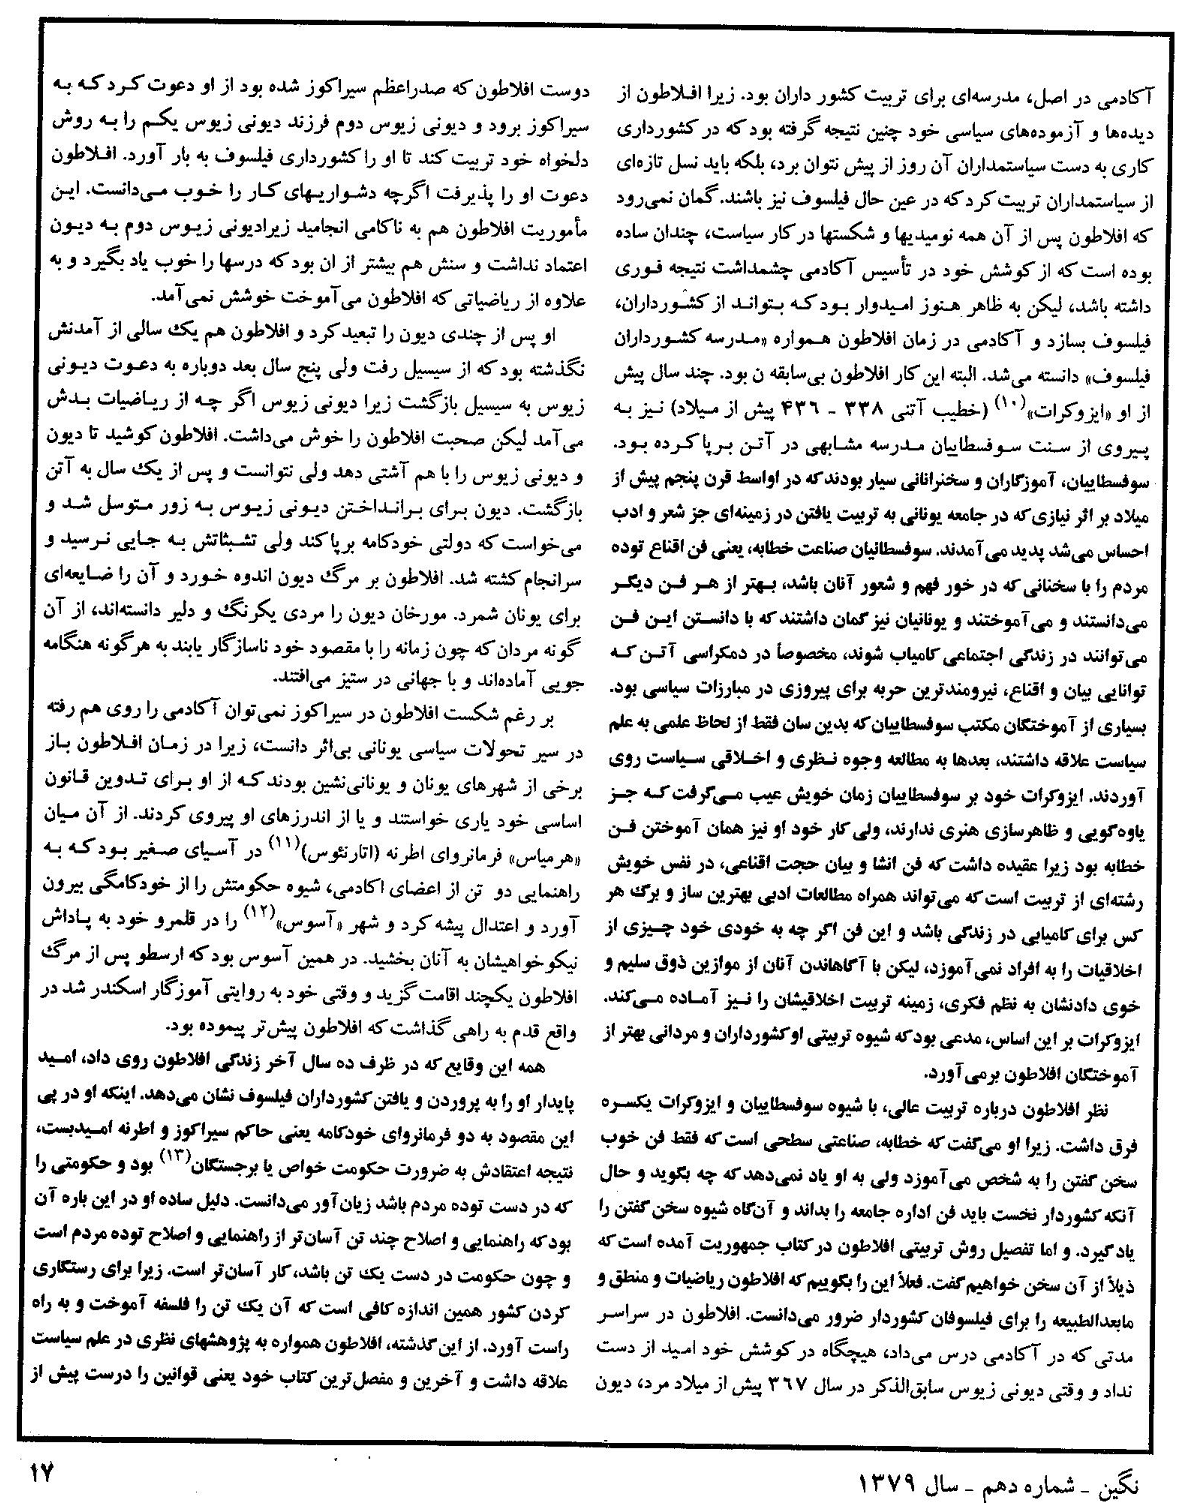 آکادمی در اصل، مدرسه‌ای برای تربیت کشور داران بود. زیرا افلاطون از
دیده‌ها و آزموده‌های سیاسی خود چنین نتیجه گرفته بود که در کشورداری
کاری به دست سیاستمداران آن روز از پیش نتوان برد، بلکه باید نسل تازه‌ای
از سیاستمداران تربیت کرد که در عین حال فیلسوف نیز باشند. گمان نمی‌رود
که افلاطون پس از آن همه نومیدیها و شکستها در کار سیاست، چندان ساده
بوده است که از کوشش خود در تأسیس آکادمی چشمداشت نتیجه فوری
داشته باشد، لیکن به ظاهر هنوز امیدوار بود که بتواند از کشورداران،
فیلسوف بسازد و آکادمی در زمان افلاطون همواره «مدرسه کشورداران
فیلسوف» دانسته می‌شد. البته این کار افلاطون بی‌سابقه ن بود. چند سال پیش
از او «ایزوکرات»(۱۰) (خطیب آتنی ۳۳۸ - ۴۳۶ پیش از میلاد) نیز به
پیروی از سنت سوفسطاییان مدرسه مشابهی در آتن برپا کرده بود.
سوفسطاییان، آموزگاران و سخنرانانی سیار بودند که در اواسط قرن پنجم پیش از
میلاد بر اثر نیازی که در جامعه یونانی به تربیت یافتن در زمینه‌ای جز شعر و ادب
احساس می‌شد پدید می‌آمدند. سوفسطائیان صناعت خطابه، یعنی فن اقناع توده
مردم را با سخنانی که در خور فهم و شعور آنان باشد، بهتر از هر فن دیگر
می‌دانستند و می‌آموختند و یونانیان نیز گمان داشتند که با دانستن این فن
می‌توانند در زندگی اجتماعی کامیاب شوند، مخصوصاً در دمکراسی آتن که
توانایی بیان و اقناع، نیرومندترین حربه برای پیروزی در مبارزات سیاسی بود.
بسیاری از آموختگان مکتب سوفسطاییان که بدین سان فقط از لحاظ علمی به علم
سیاست علاقه داشتند، بعدها به مطالعه وجوه نظری و اخلاقی سیاست روی
آوردند. ایزوکرات خود بر سوفسطاییان زمان خویش عیب می‌گرفت که جز
یاوه‌گویی و ظاهرسازی هنری ندارند، ولی کار خود او نیز همان آموختن فن
خطابه بود زیرا عقیده داشت که فن انشا و بیان حجت اقناعی، در نفس خویش
رشته‌ای از تربیت است که می‌تواند همراه مطالعات ادبی بهترین ساز و برگ هر
کس برای کامیابی در زندگی باشد و این فن اگر چه به خودی خود چیزی از
اخلاقیات را به افراد نمی‌آموزد، لیکن با آگاهاندن آنان از موازین ذوق سلیم و
خوی دادنشان به نظم فکری، زمینه تربیت اخلاقیشان را نیز آماده می‌کند.
ایزوکرات بر این اساس، مدعی بود که شیوه تربیتی او کشورداران و مردانی بهتر از
آموختگان افلاطون برمی‌آورد.
نظر افلاطون درباره تربیت عالی، با شیوه سوفسطاییان و ایزوکرات یکسره
فرق داشت. زیرا او می‌گفت که خطابه، صناعتی سطحی است که فقط فن خوب
سخن گفتن را به شخص می‌آموزد ولی به او یاد نمی‌دهد که چه بگوید و حال
آنکه کشوردار نخست باید فن اداره جامعه را بداند و آن‌گاه شیوه سخن گفتن را
یاد گیرد. و اما تفصیل روش تربیتی افلاطون در کتاب جمهوریت آمده است که
ذیلاً از آن سخن خواهیم گفت. فعلاً این را بگوییم که افلاطون ریاضیات و منطق و
مابعدالطبیعه را برای فیلسوفان کشوردار ضرور می‌دانست. افلاطون در سراسر
مدتی که در آکادمی درس می‌داد، هیچگاه در کوشش خود امید از دست
نداد و وقتی دیونی زیوس سابق‌الذکر در سال ۳۶۷ پیش از میلاد مرد، دیون
دوست افلاطون که صدراعظم سیراکوز شده بود از او دعوت کرد که به
سیراکوز برود و دیونی زیوس دوم فرزند دیونی زیوس یکم را به روش
دلخواه خود تربیت کند تا او را کشورداری فیلسوف به بار آورد. افلاطون
دعوت او را پذیرفت اگرچه دشواریهای کار را خوب می‌دانست. این
مأموریت افلاطون هم به ناکامی انجامید زیرادیونی زیوس دوم به دیون
اعتماد نداشت و سنش هم بیشتر از ان بود که درسها را خوب یاد بگیرد و به
علاوه از ریاضیاتی که افلاطون می‌آموخت خوشش نمی‌آمد.
او پس از چندی دیون را تبعید کرد و افلاطون هم یک سالی از آمدنش
نگذشته بود که از سیسیل رفت ولی پنج سال بعد دوباره به دعوت دیونی
زیوس به سیسیل بازگشت زیرا دیونی زیوس اگر چه از ریاضیات بدش
می‌آمد لیکن صحبت افلاطون را خوش می‌داشت. افلاطون کوشید تا دیون
و دیونی زیوس را با هم آشتی دهد ولی نتوانست و پس از یک سال به آتن
بازگشت. دیون برای برانداختن دیونی زیوس به زور متوسل شد و
می‌خواست که دولتی خودکامه برپا کند ولی تشبثاتش به جایی نرسید و
سرانجام کشته شد. افلاطون بر مرگ دیون اندوه خورد و آن را ضایعه‌ای
برای یونان شمرد. مورخان دیون را مردی یکرنگ و دلیر دانسته‌اند، از آن
گونه مردان که چون زمانه را با مقصود خود ناسازگار یابند به هرگونه هنگامه
جویی آماده‌اند و با جهانی در ستیز می‌افتند.
بر رغم شکست افلاطون در سیراکوز نمی‌توان آکادمی را روی هم رفته
در سیر تحولات سیاسی یونانی بی‌اثر دانست، زیرا در زمان افلاطون باز
برخی از شهرهای یونان و یونانی‌نشین بودند که از او برای تدوین قانون
اساسی خود یاری خواستند و یا از اندرزهای او پیروی کردند. از آن میان
«هرمیاس» فرمانروای اطرنه (اتارنئوس)(۱۱) در آسیای صغیر بود که به
راهنمایی دو تن از اعضای اکادمی، شیوه حکومتش را از خودکامگی بیرون
آورد و اعتدال پیشه کرد و شهر «آسوس»(۱۲) را در قلمرو خود به پاداش
نیکو خواهیشان به آنان بخشید. در همین آسوس بود که ارسطو پس از مرگ
افلاطون یکچند اقامت گزید و وقتی خود به روایتی آموزگار اسکندر شد در
واقع قدم به راهی گذاشت که افلاطون پیش‌تر پیموده بود.
همه این وقایع که در ظرف ده سال آخر زندگی افلاطون روی داد، امید
پایدار او را به پروردن و یافتن کشورداران فیلسوف نشان می‌دهد. اینکه او در پی
این مقصود به دو فرمانروای خودکامه یعنی حاکم سیراکوز و اطرنه امیدبست،
نتیجه اعتقادش به ضرورت حکومت خواص یا برجستگان(۱۳) بود و حکومتی را
که در دست توده مردم باشد زیان‌آور می‌دانست. دلیل ساده او در این باره آن
بود که راهنمایی و اصلاح چند تن آسان‌تر از راهنمایی و اصلاح توده مردم است
و چون حکومت در دست یک تن باشد، کار آسان‌تر است. زیرا برای رستگاری
کردن کشور همین اندازه کافی است که آن یک تن را فلسفه آموخت و به راه
راست آورد. از این گذشته، افلاطون همواره به پژوهشهای نظری در علم سیاست
علاقه داشت و آخرین و مفصل‌ترین کتاب خود یعنی قوانین را درست پیش از
نگین - شماره دهم - سال ۱۳۷۹
۱۷